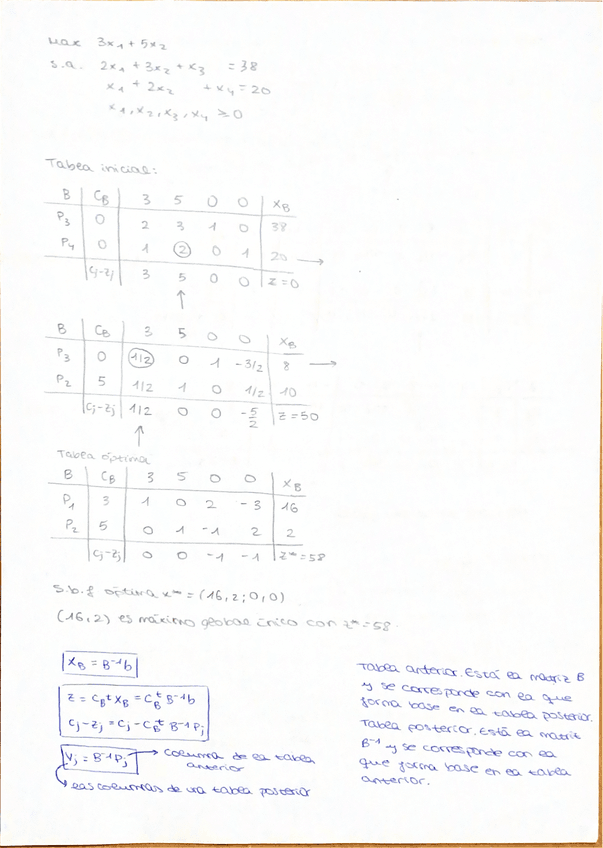 max 3x1 + 5x2
s.a. 2x1 + 3x2 + x3 = 38
x1 + 2x2 + x4 = 20
x1, x2, x3, x4 ≥ 0
Tabla inicial:
B CB 3 5 0 0 XB
P3 0 2 3 1 0 38
P4 0 1 2 0 1 20 →
Cj-Zj 3 5 0 0 Z=0
↑
B CB 3 5 0 0 XB
P3 0 1/2 0 1 -3/2 8 →
P2 5 1/2 1 0 1/2 10
Cj-Zj 1/2 0 0 -5/2 Z=50
↑
Tabla óptima
B CB 3 5 0 0 XB
P1 3 1 0 2 -3 16
P2 5 0 1 -1 2 2
Cj-Zj 0 0 -1 -1 Z*=58
s.b.f óptima x* = (16,2;0,0)
(16,2) es máximo global único con z*=58.
XB = B⁻¹b
Z = CBᵗ XB = CBᵗ B⁻¹b
Cj-Zj = Cj - CBᵗ B⁻¹Pj
Vj = B⁻¹Pj → columna de la tabla
anterior
↳ las columnas de una tabla posterior
Tabla anterior. Está la matriz B
y se corresponde con la que
forma base en la tabla posterior.
Tabla posterior. Está la matriz
B⁻¹ y se corresponde con la
que forma base en la tabla
anterior.